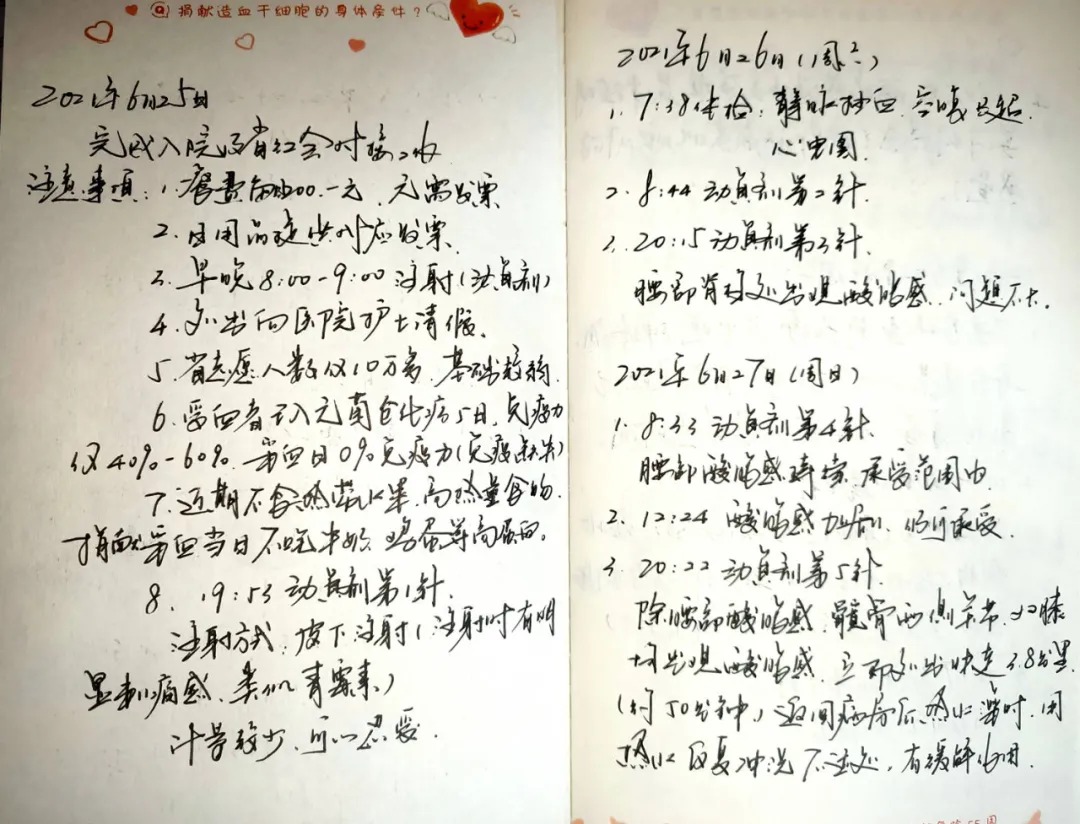 @捐献造血干细胞的身体条件?
2021年6月25日
完成入院及省红会对接工作
注意事项:1.餐费 200.-元,无需发票
2.日用品提供对应发票
3.早晚8:00-9:00注射(动员剂)
4.外出向医院护士请假.
5.省志愿人数仅10万多,基础较弱.
6.受血者已入无菌仓化疗5日,免疫力
仅40%-60%.采血日0%免疫力(免疫缺失)
7.近期不食热带水果,高热量食物.
捐献采血当日不吃牛奶 鸡蛋等高蛋白.
8、19:53动员剂第1针.
注射方式:皮下注射(注射时有明
显刺痛感、类似青霉素)
计量较少,可以忍受.
2021年6月26日(周 )
1.7:38体检:静脉抽血,空腹B超.
心电图.
2.8:44动员剂第2针.
3.20:15动员剂第3针.
腰部脊柱处出现酸胀感.问题不大.
2021年6月27日(周日)
1.8:33动员剂第4针.
腰部酸胀感持续.承受范围内
2.12:24酸胀感加剧,仍可承受.
3.20:22动员剂第5针.
除腰部酸胀感.髋骨两侧关节、双膝
均出现酸胀感.立即外出快走3.8公里
(约50分钟)返回病房后热水澡时.用
热水反复冲洗不适处,有缓解作用.